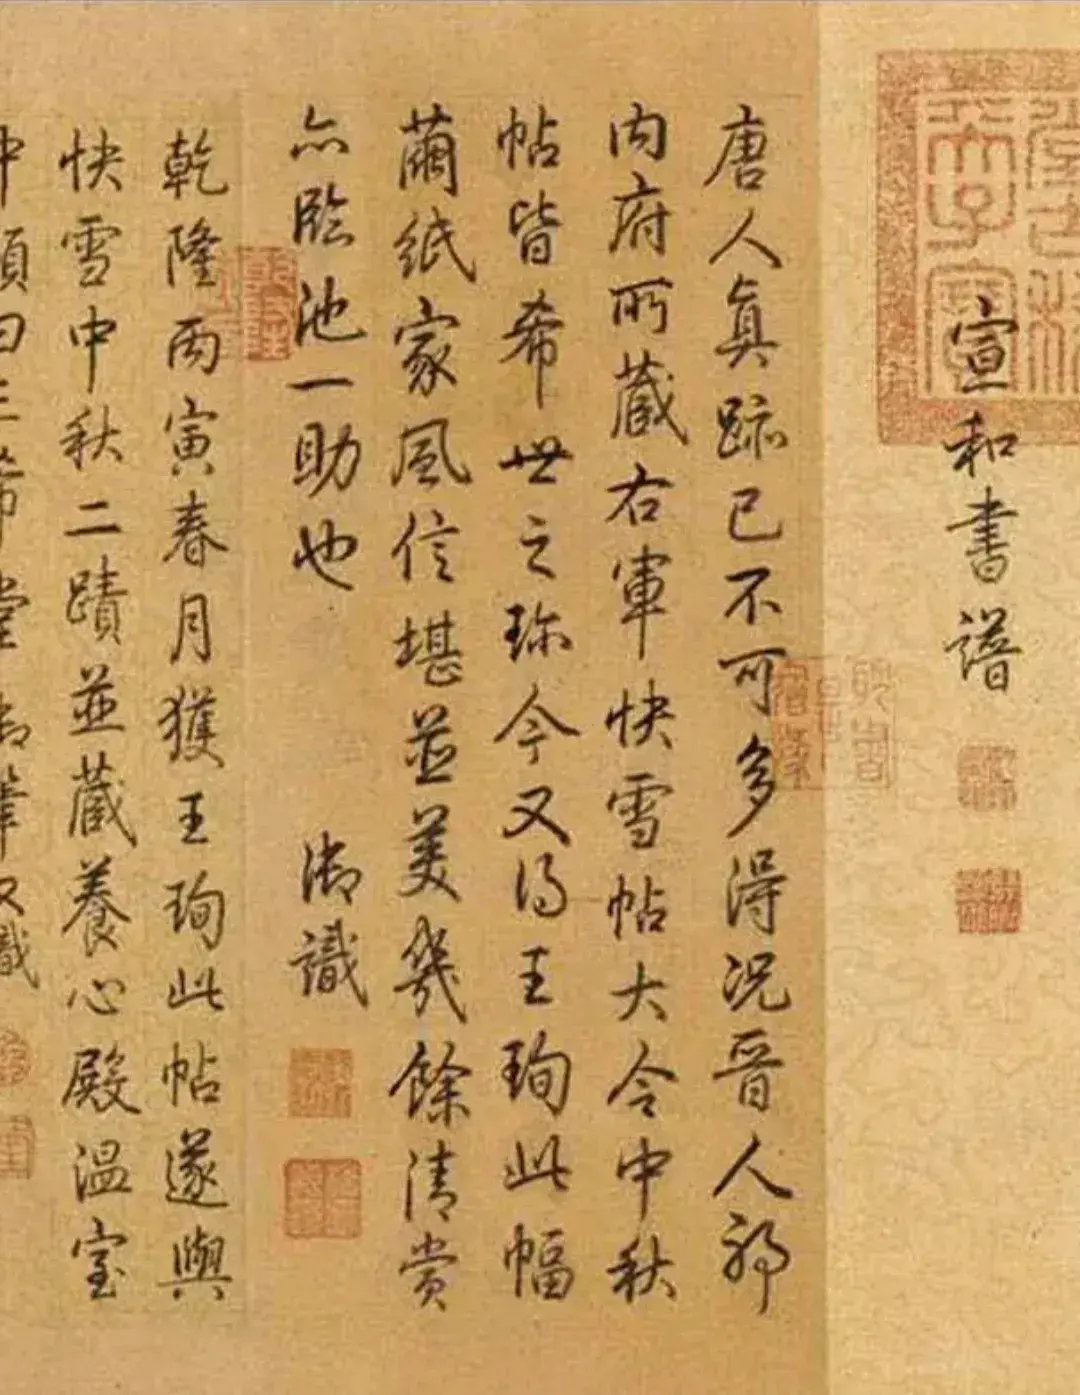 宣和書譜
唐人真跡已不可多得況晉人耶
内府所藏右軍快雪帖大令中秋
帖皆希世之珎今又得王珣此幅
繭紙家風信堪並美幾餘清賞
亦臨池一助也 御識
乾隆丙寅春月獲王珣此帖遂與
快雪中秋二蹟並藏養心殿溫室
中顏曰三希堂御筆又識